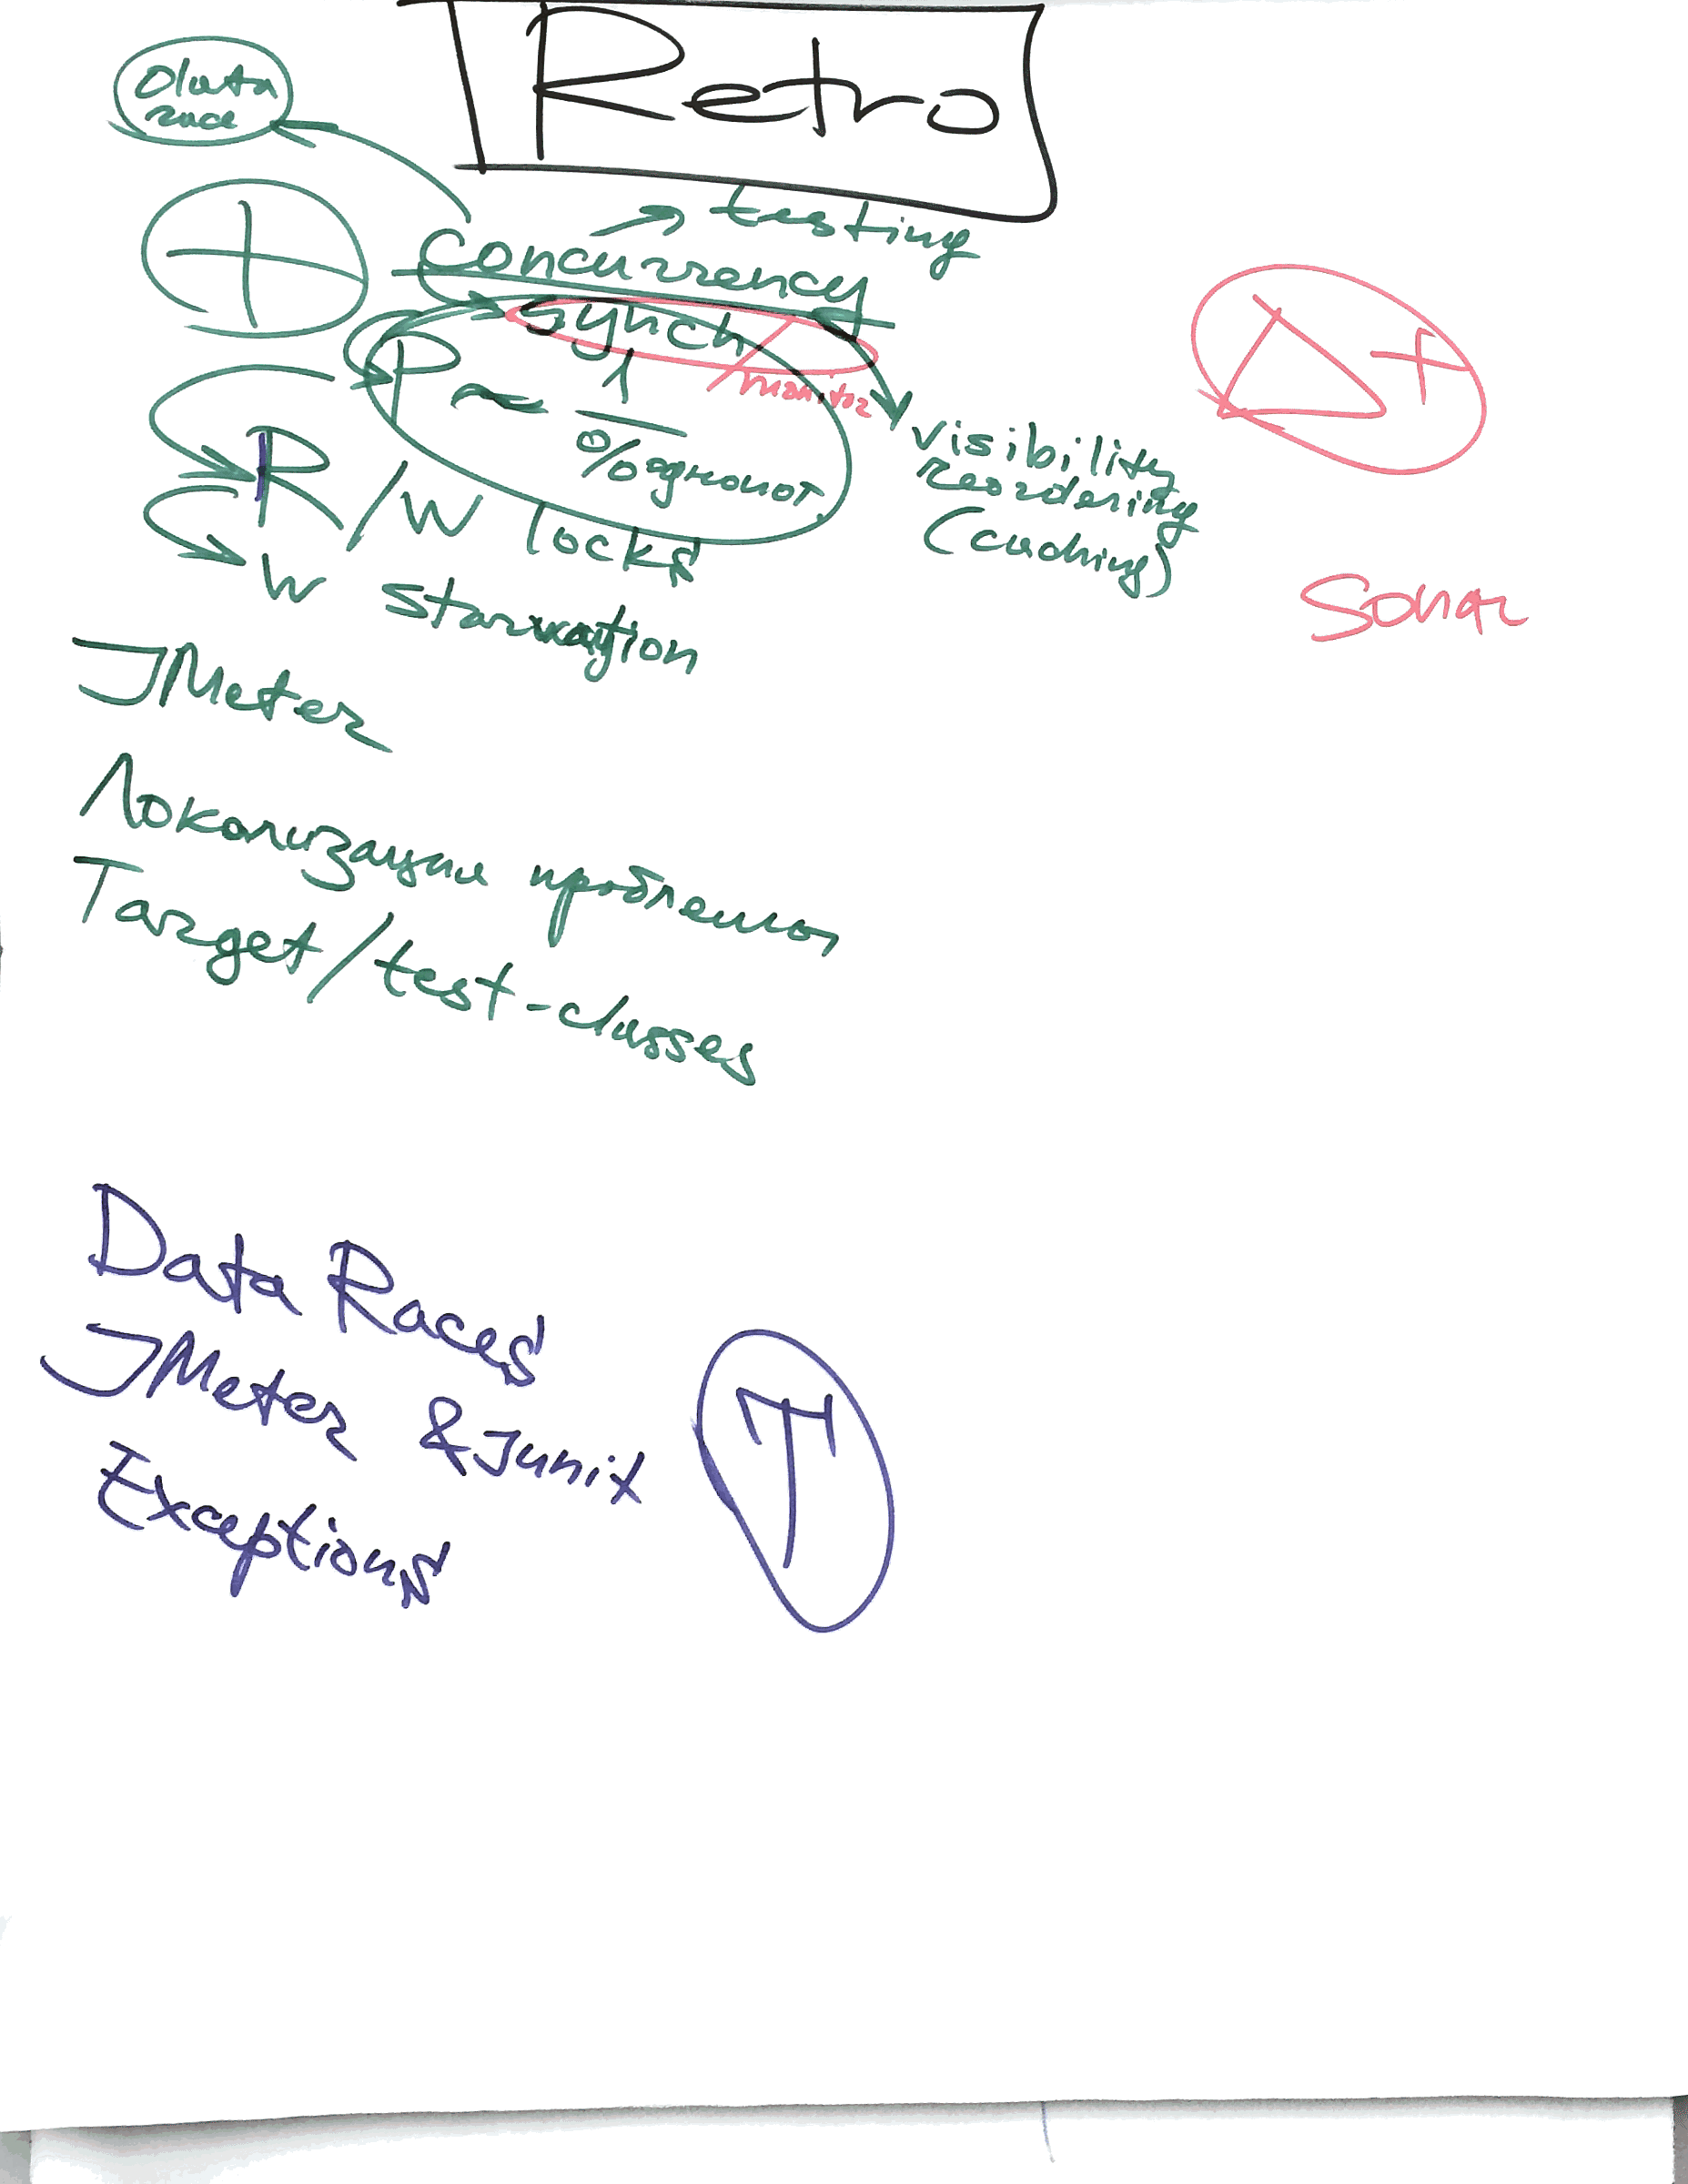 Retro
data
race
+
Concurrency → testing
synch / monitor
P ~ 1
% однопот.
visibility
reordering
(caching)
R/W locks
W starvation
JMeter
Локализация проблемы
Target/test-classes
Δ+
Sonar
Data Races
JMeter & Junit
Exceptions
T